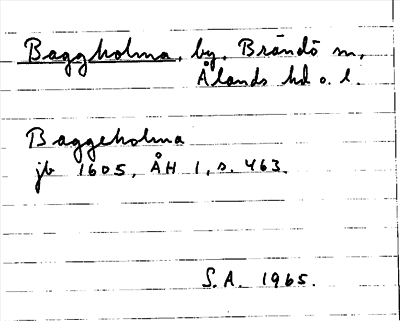 Baggholma, by, Brändö sn,
Ålands hd o. l.
Baggeholma
jb 1605, ÅH 1, s. 463.
S.A. 1965.